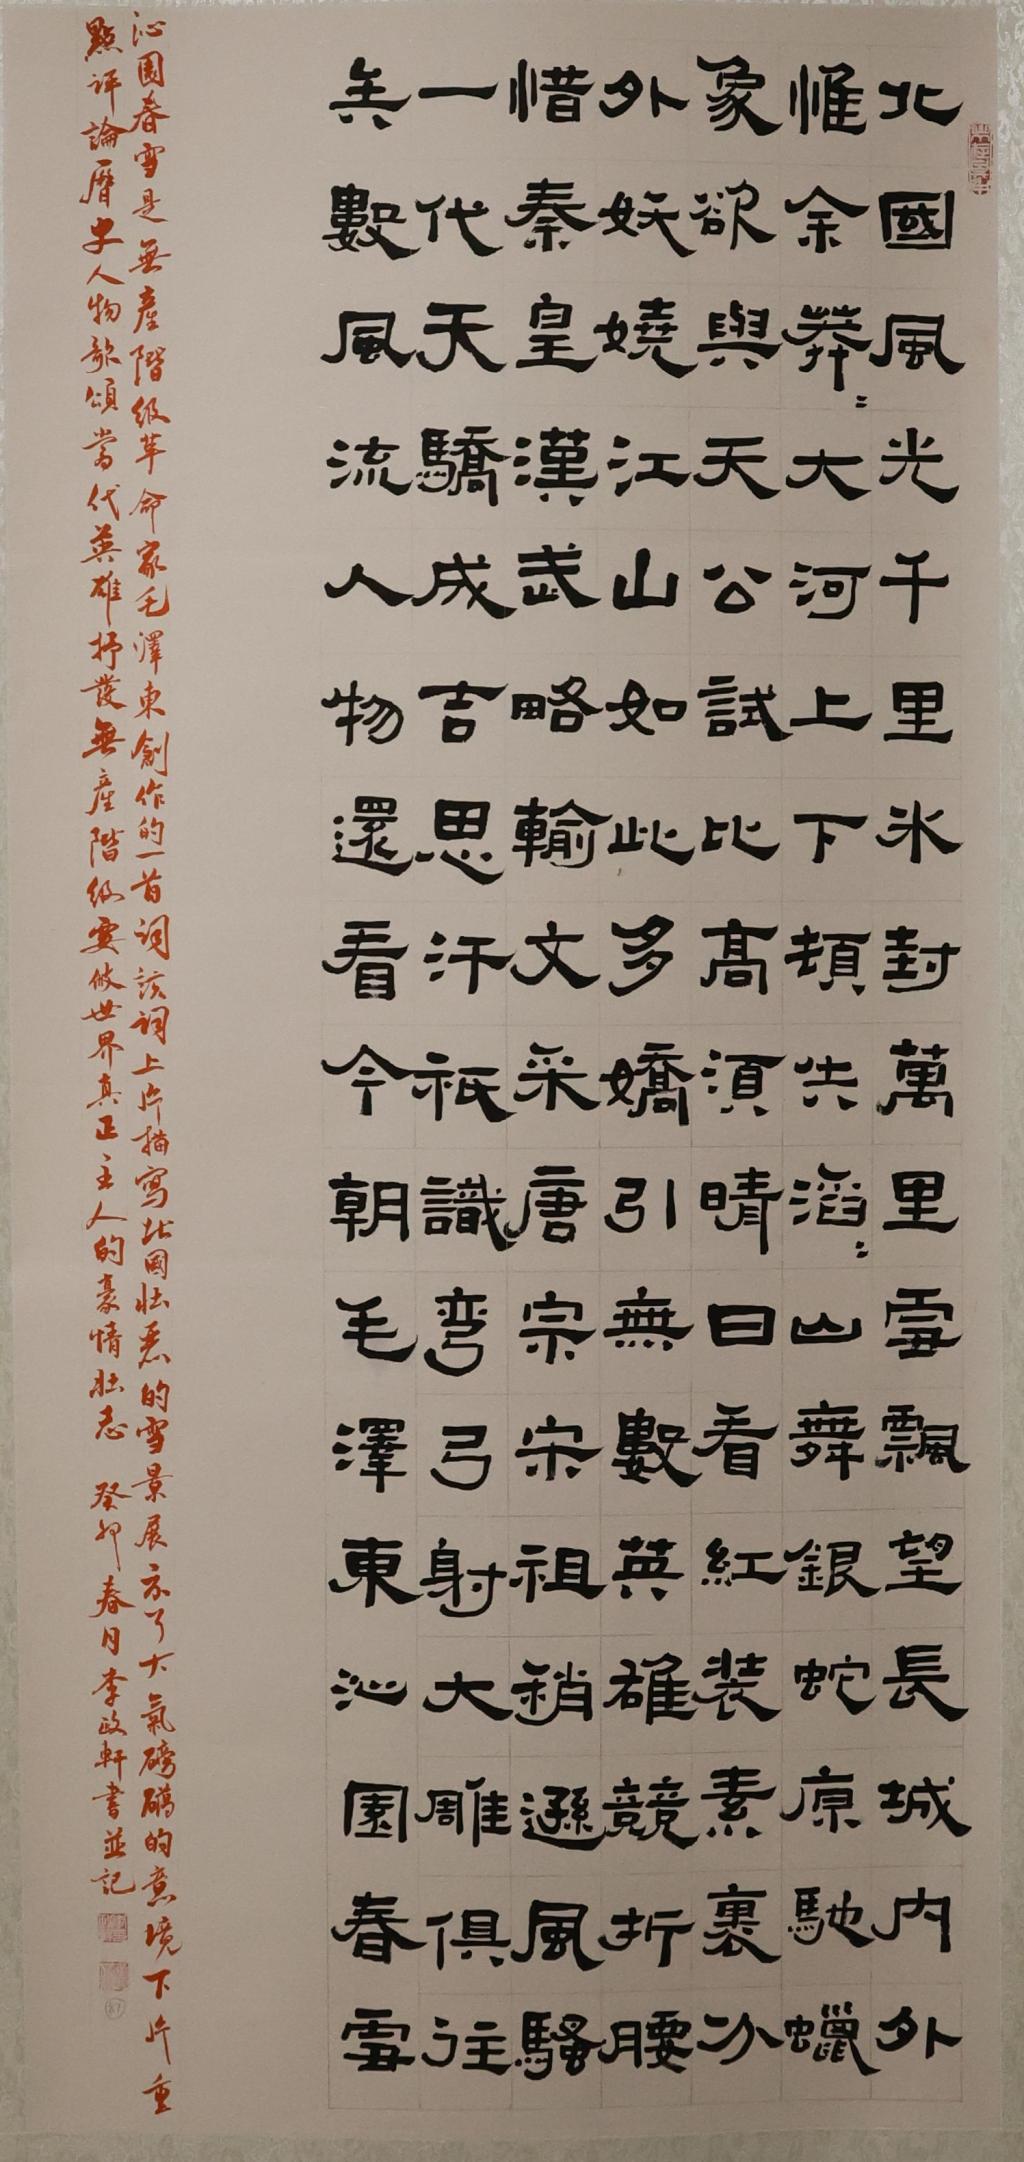 北國風光千里冰封萬里雪飄望長城內外
惟余莽〻大河上下頓失滔〻山舞銀蛇原馳蠟
象欲與天公試比高須晴日看紅裝素裹分
外妖嬈江山如此多嬌引無數英雄競折腰
惜秦皇漢武略輸文采唐宗宋祖稍遜風騷
一代天驕成吉思汗祇識彎弓射大雕俱往
矣數風流人物還看今朝毛澤東沁園春雪
沁園春雪是無產階級革命家毛澤東創作的一首詞該詞上片描寫北國壯麗的雪景展示了大氣磅礴的意境下片重
點評論歷史人物歌頌當代英雄抒發無產階級要做世界真正主人的豪情壯志 癸卯春月李政軒書並記
87